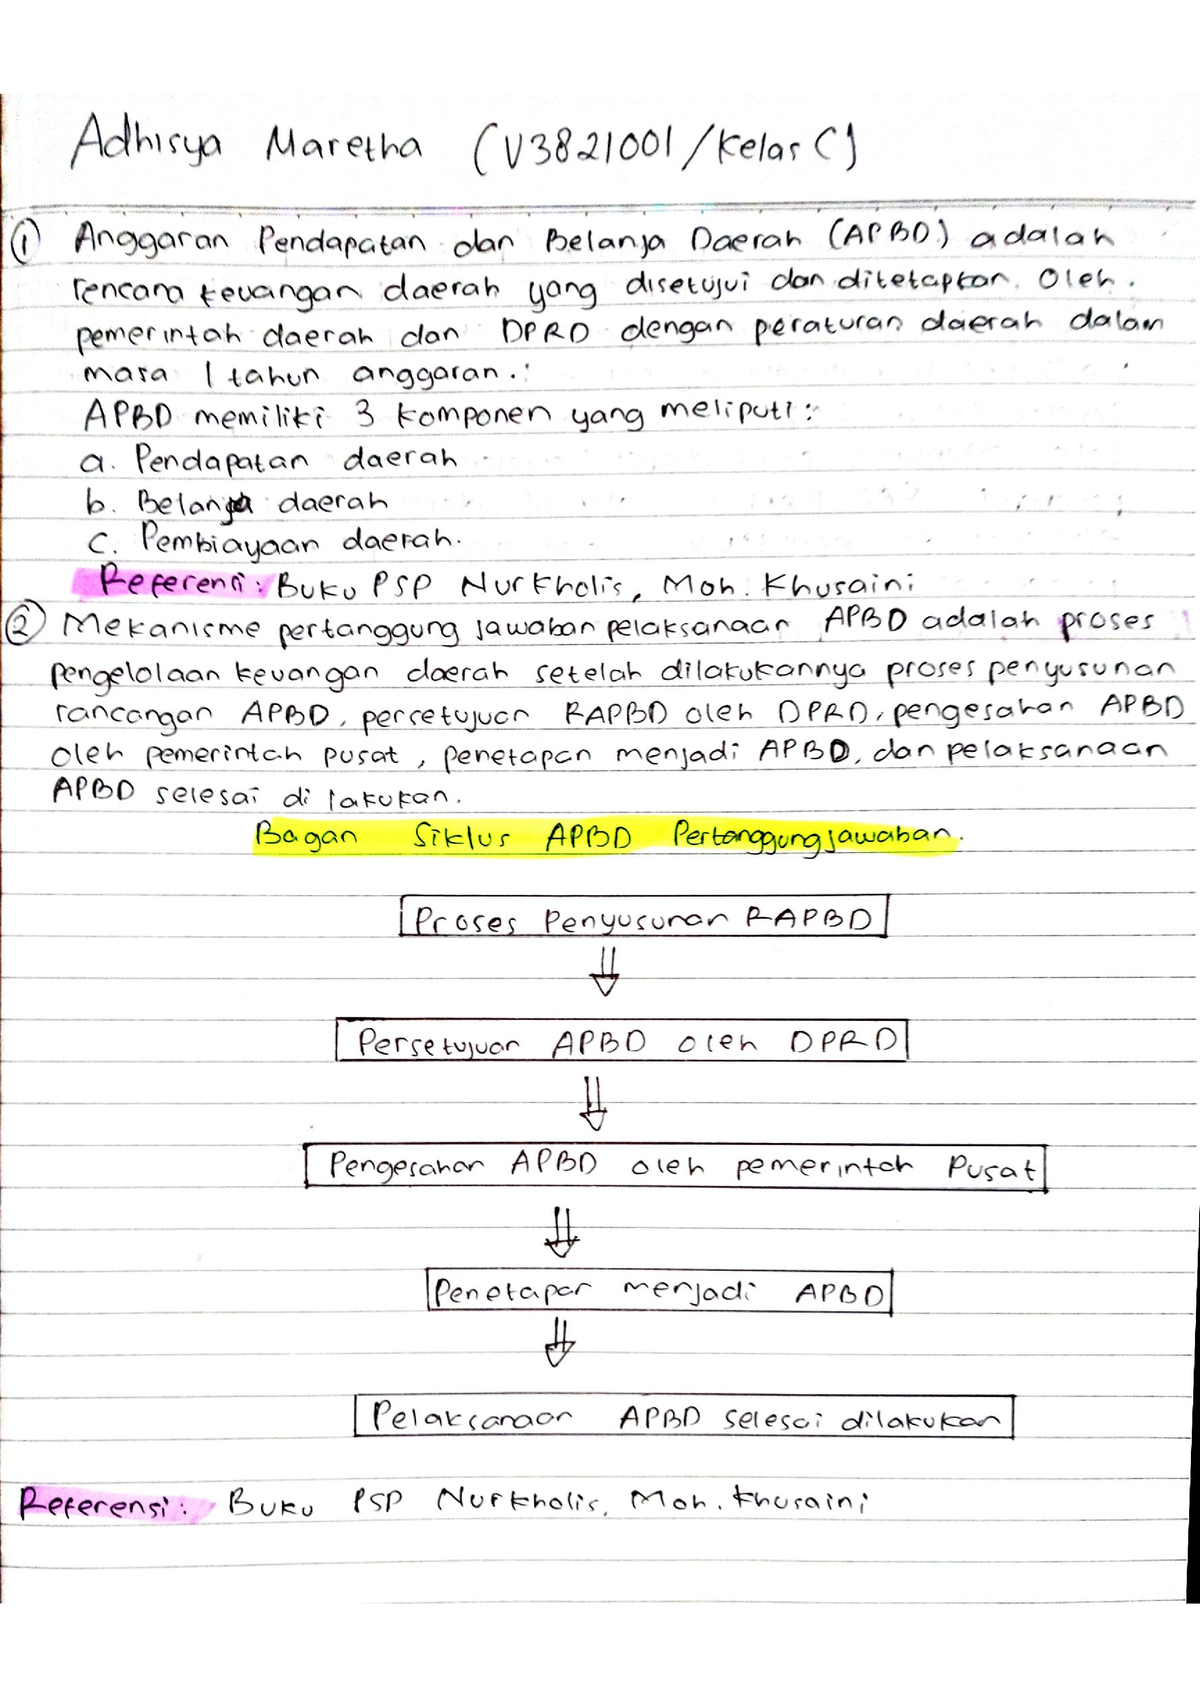 Adhisya Maretha (V3821001/Kelas C)
① Anggaran Pendapatan dan Belanja Daerah (APBD) adalah
rencana keuangan daerah yang disetujui dan ditetapkan oleh
pemerintah daerah dan DPRD dengan peraturan daerah dalam
masa 1 tahun anggaran.
APBD memiliki 3 komponen yang meliputi:
a. Pendapatan daerah
b. Belanja daerah
c. Pembiayaan daerah.
Referensi: Buku PSP Nurkholis, Moh. Khusaini
② Mekanisme pertanggung jawaban pelaksanaan APBD adalah proses
pengelolaan keuangan daerah setelah dilakukannya proses penyusunan
rancangan APBD, persetujuan RAPBD oleh DPRD, pengesahan APBD
oleh pemerintah pusat, penetapan menjadi APBD, dan pelaksanaan
APBD selesai di lakukan.
Bagan Siklus APBD Pertanggungjawaban.
Proses Penyusunan RAPBD
⇓
Persetujuan APBD oleh DPRD
⇓
Pengesahan APBD oleh pemerintah Pusat
⇓
Penetapan menjadi APBD
⇓
Pelaksanaan APBD selesai dilakukan
Referensi: Buku PSP Nurkholis, Moh. Khusaini